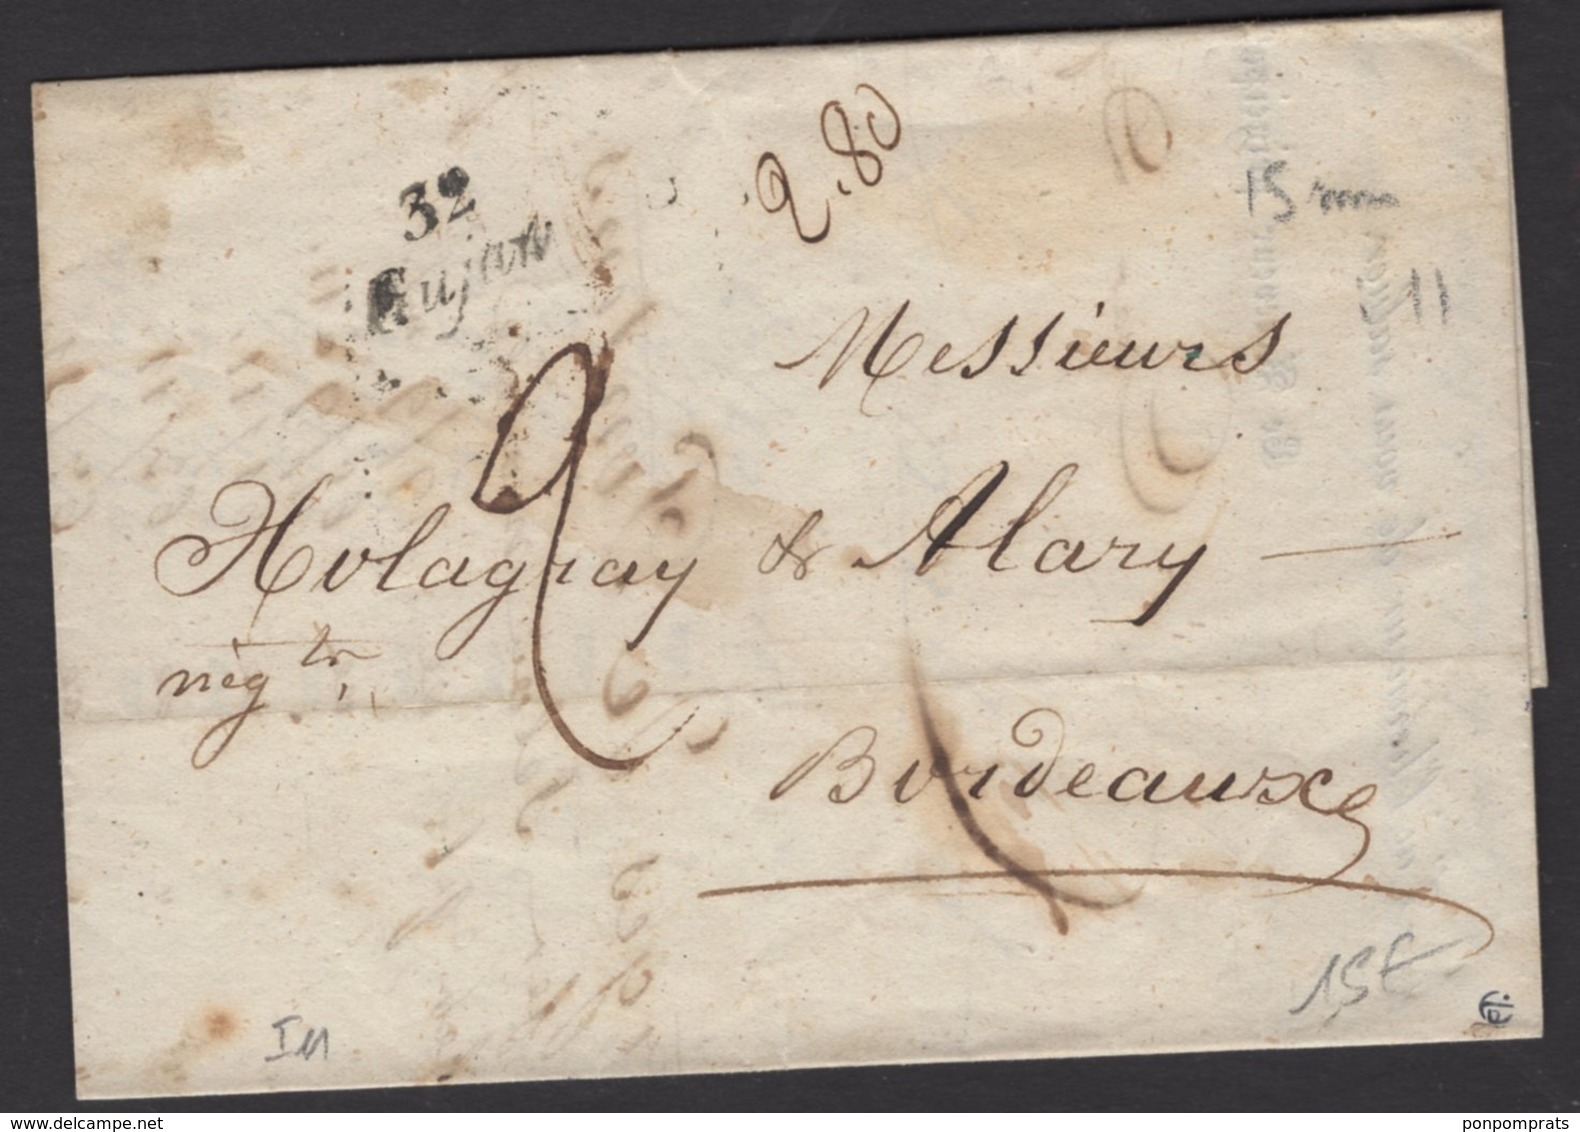 32
Gujan
2.80
15 mm
11
Messieurs
2
Holagray & Alary
nég tr
Bordeaux
15€
I11
delcampe.net
ponpomprats